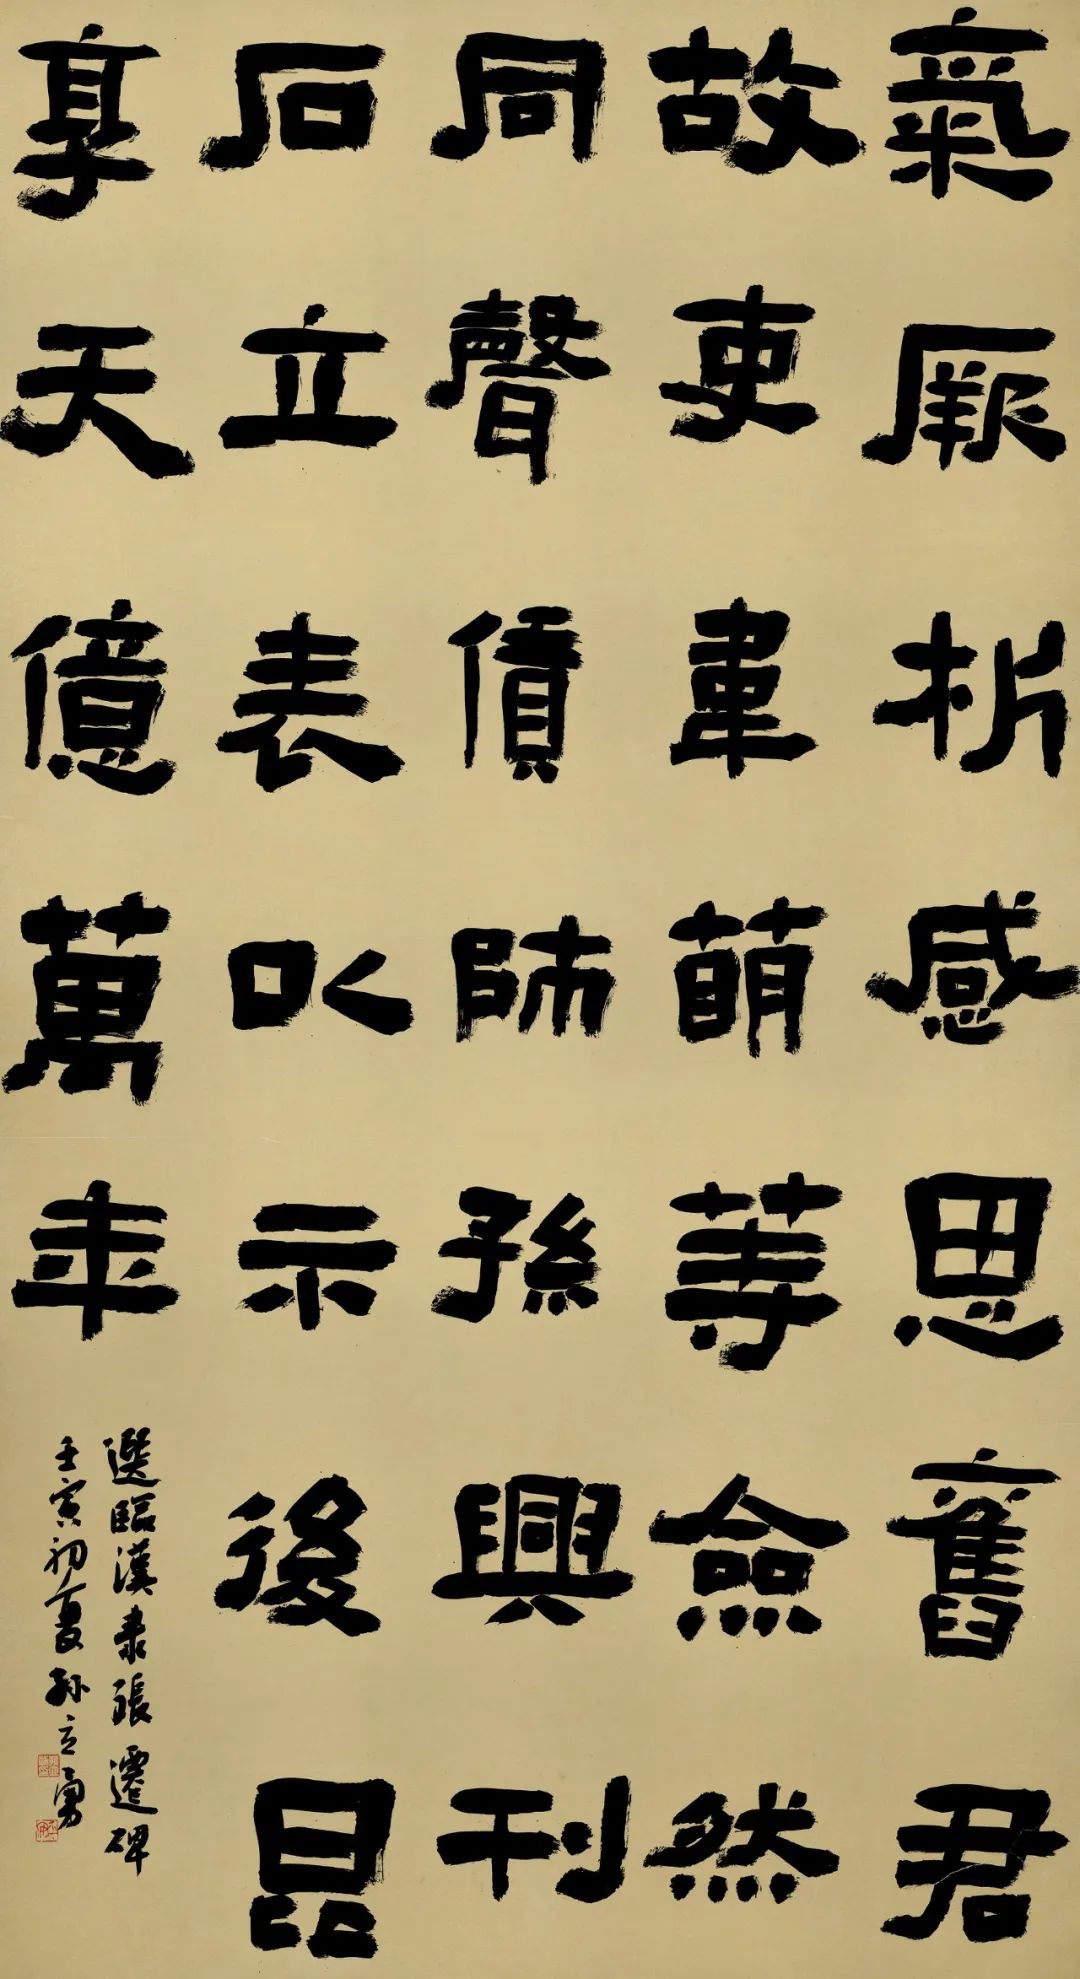 氣厥析感思舊君
故吏韋萌等僉然
同聲賃師孫興刊
石立表以示後昆
享天億萬年
選臨漢隸張遷碑
壬寅初夏孙立勇